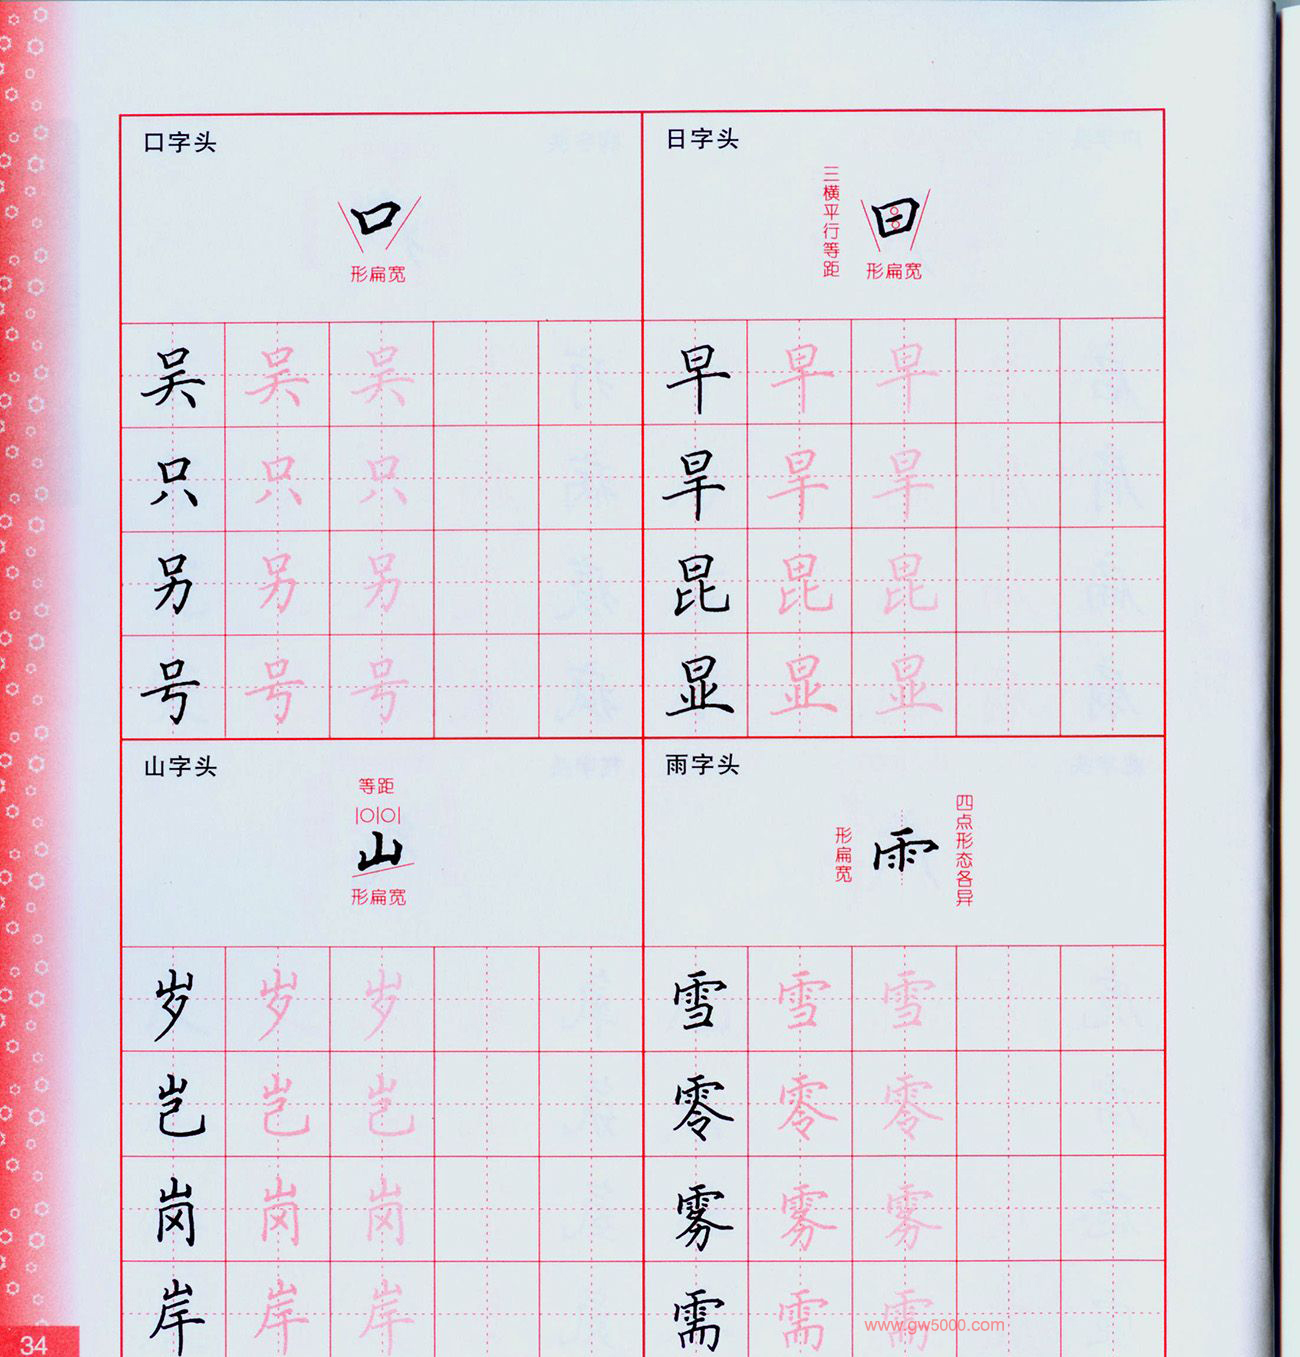 口字头
形扁宽
吴 吴 吴
只 只 只
另 另 另
号 号 号
日字头
三横平行等距
形扁宽
早 早 早
旱 旱 旱
昆 昆 昆
显 显 显
山字头
等距
山
形扁宽
岁 岁 岁
岂 岂 岂
岗 岗 岗
岸 岸 岸
雨字头
形扁宽
四点形态各异
雪 雪 雪
零 零 零
雾 雾 雾
需 需 需
www.gw5000.com
34